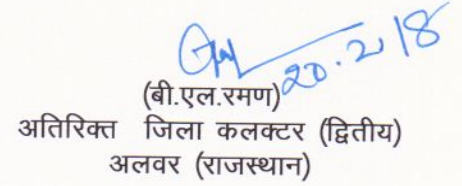 20.2.18
(बी.एल.रमण)
अतिरिक्त जिला कलक्टर (द्वितीय)
अलवर (राजस्थान)